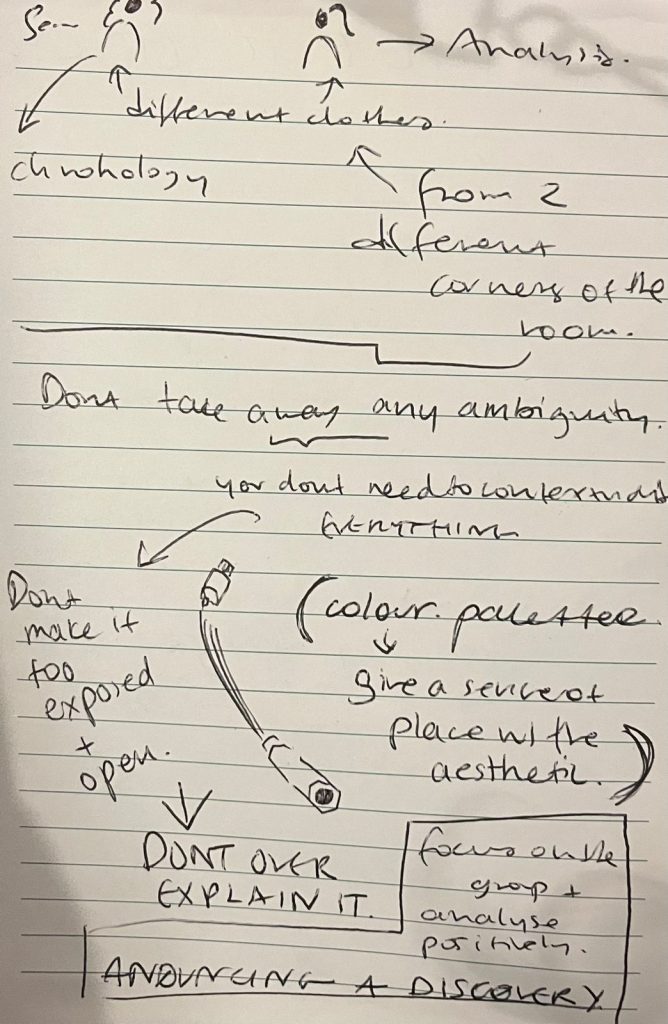 → Analysis.
different clothes.
chronology
from 2
different
corners of the
room.
Dont take away any ambiguity.
you dont need to
EVERYTHING
Dont
make it
too
exposed
+
open.
(colour palettee.
give a sense of
place w/ the
aesthetic.)
DONT OVER
EXPLAIN IT.
focus on the
group +
analyse
positively.
ANOUNCING A DISCOVERY